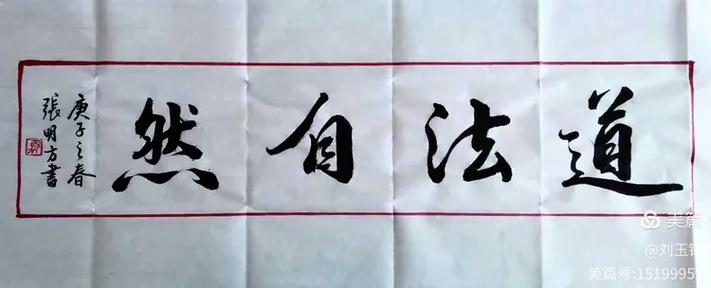 道法自然
庚子之春
張明方書
美篇
@刘玉
美篇号:1519995